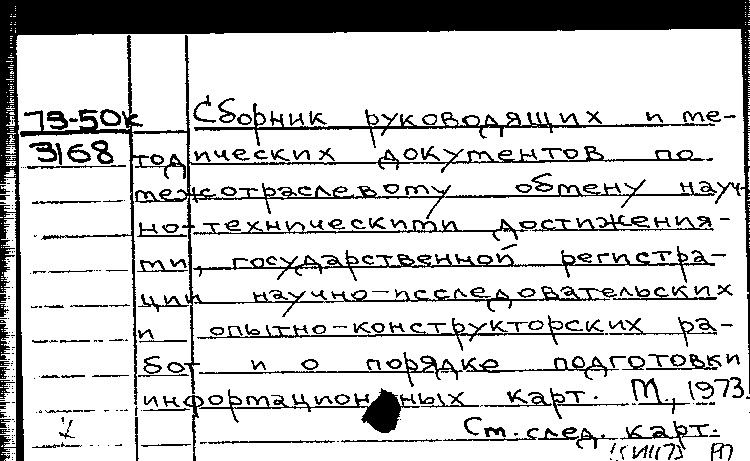 73-50к Сборник руководящих и ме-
3168 тодических документов по
межотраслевому обмену науч-
но-техническими достижения-
ми, государственной регистра-
ции научно-исследовательских
и опытно-конструкторских ра-
бот и о порядке подготовки
информационных карт. М., 1973.
См. след. карт.